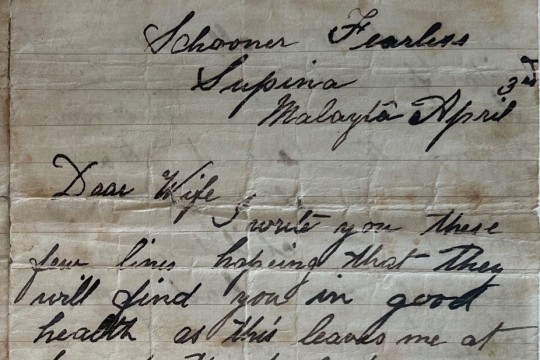 Schooner Fearless
Supina
Malayta April 3rd
Dear Wife
I write you these
few lines hopeing that they
will find you in good
health as this leaves me at